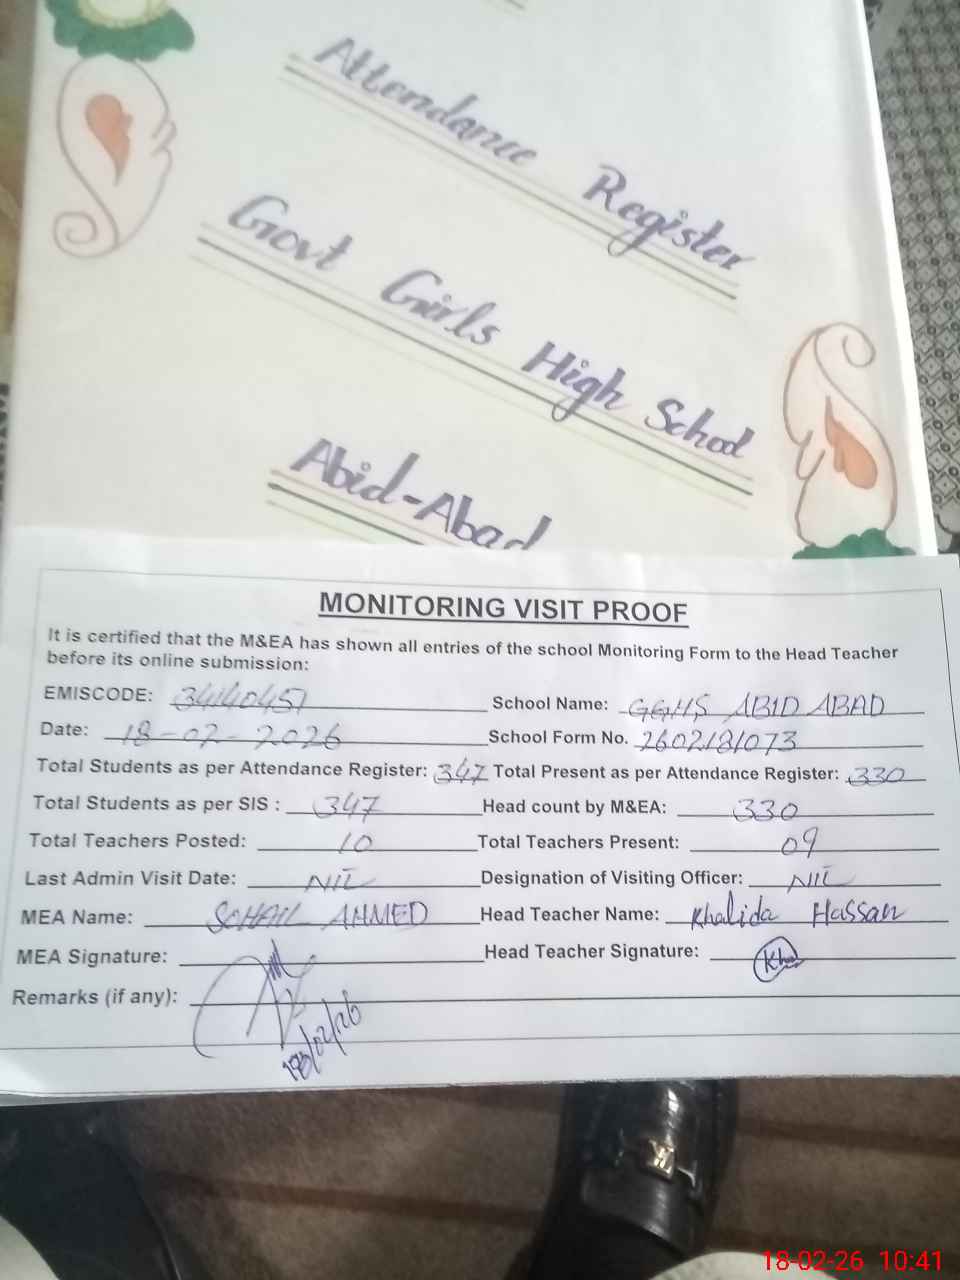 Attendance Register
Govt Girls High School
Abid-Abad
MONITORING VISIT PROOF
It is certified that the M&EA has shown all entries of the school Monitoring Form to the Head Teacher
before its online submission:
EMISCODE: 34140451 School Name: GGHS ABID ABAD
Date: 18-02-2026 School Form No. 2602181073
Total Students as per Attendance Register: 347 Total Present as per Attendance Register: 330
Total Students as per SIS : 347 Head count by M&EA: 330
Total Teachers Posted: 10 Total Teachers Present: 09
Last Admin Visit Date: NIL Designation of Visiting Officer: NIL
MEA Name: SOHAIL AHMED Head Teacher Name: Khalida Hassan
MEA Signature: Head Teacher Signature: Kha
Remarks (if any):
18/02/26
18-02-26 10:41